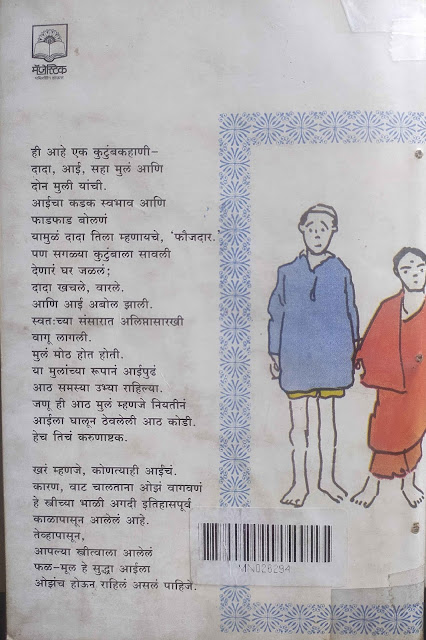 मॅजेस्टिक
ही आहे एक कुटुंबकहाणी–
दादा, आई, सहा मुलं आणि
दोन मुली यांची.
आईचा कडक स्वभाव आणि
फाडफाड बोलणं
यामुळं दादा तिला म्हणायचे, 'फौजदार.'
पण सगळ्या कुटुंबाला सावली
देणारं घर जळलं;
दादा खचले, वारले.
आणि आई अबोल झाली.
स्वतःच्या संसारात अलिप्तासारखी
वागू लागली.
मुलं मोठ होत होती.
या मुलांच्या रूपानं आईपुढं
आठ समस्या उभ्या राहिल्या.
जणू ही आठ मुलं म्हणजे नियतीनं
आईला घालून ठेवलेली आठ कोडी.
हेच तिचं करुणाष्टक.
खरं म्हणजे, कोणत्याही आईचं.
कारण, वाट चालताना ओझं वागवणं
हे स्त्रीच्या भाळी अगदी इतिहासपूर्व
काळापासून आलेलं आहे.
तेव्हापासून,
आपल्या स्त्रीत्वाला आलेलं
फळ-मूल हे सुद्धा आईला
ओझंच होऊन राहिलं असलं पाहिजे.
MN028294